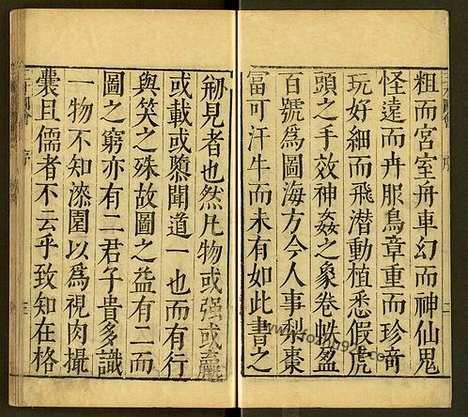 粗而宮室舟車幻而神仙鬼
怪遠而卉服鳥章重而珍竒
玩好細而飛潛動植悉假虎
頭之手效神姦之象卷帙盈
百號爲圖海方今人事梨棗
富可汗牛而未有如此書之
剏見者也然凡物或强或羸
或載或隳聞道一也而有行
與笑之殊故圖之益有二而
圖之窮亦有二君子貴多識
一物不知漆園以爲視肉撮
囊且儒者不云乎致知在格
三才圖會 序